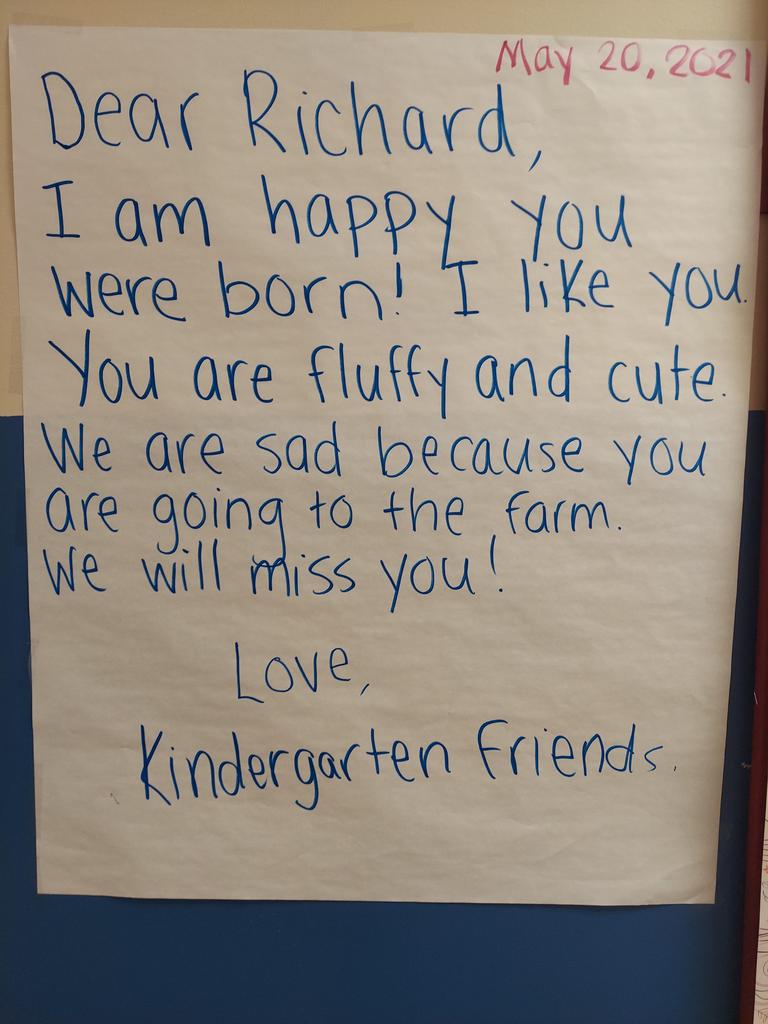 May 20, 2021
Dear Richard,
I am happy you
were born! I like you.
You are fluffy and cute.
We are sad because you
are going to the farm.
We will miss you!
Love,
Kindergarten Friends.